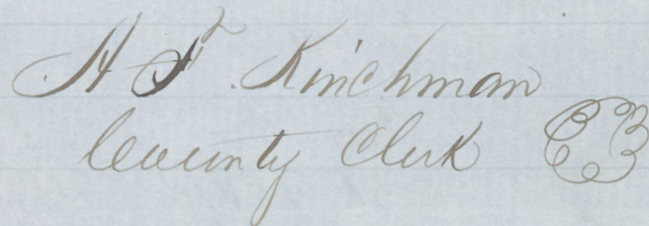 H F. Kinchman
County Clerk